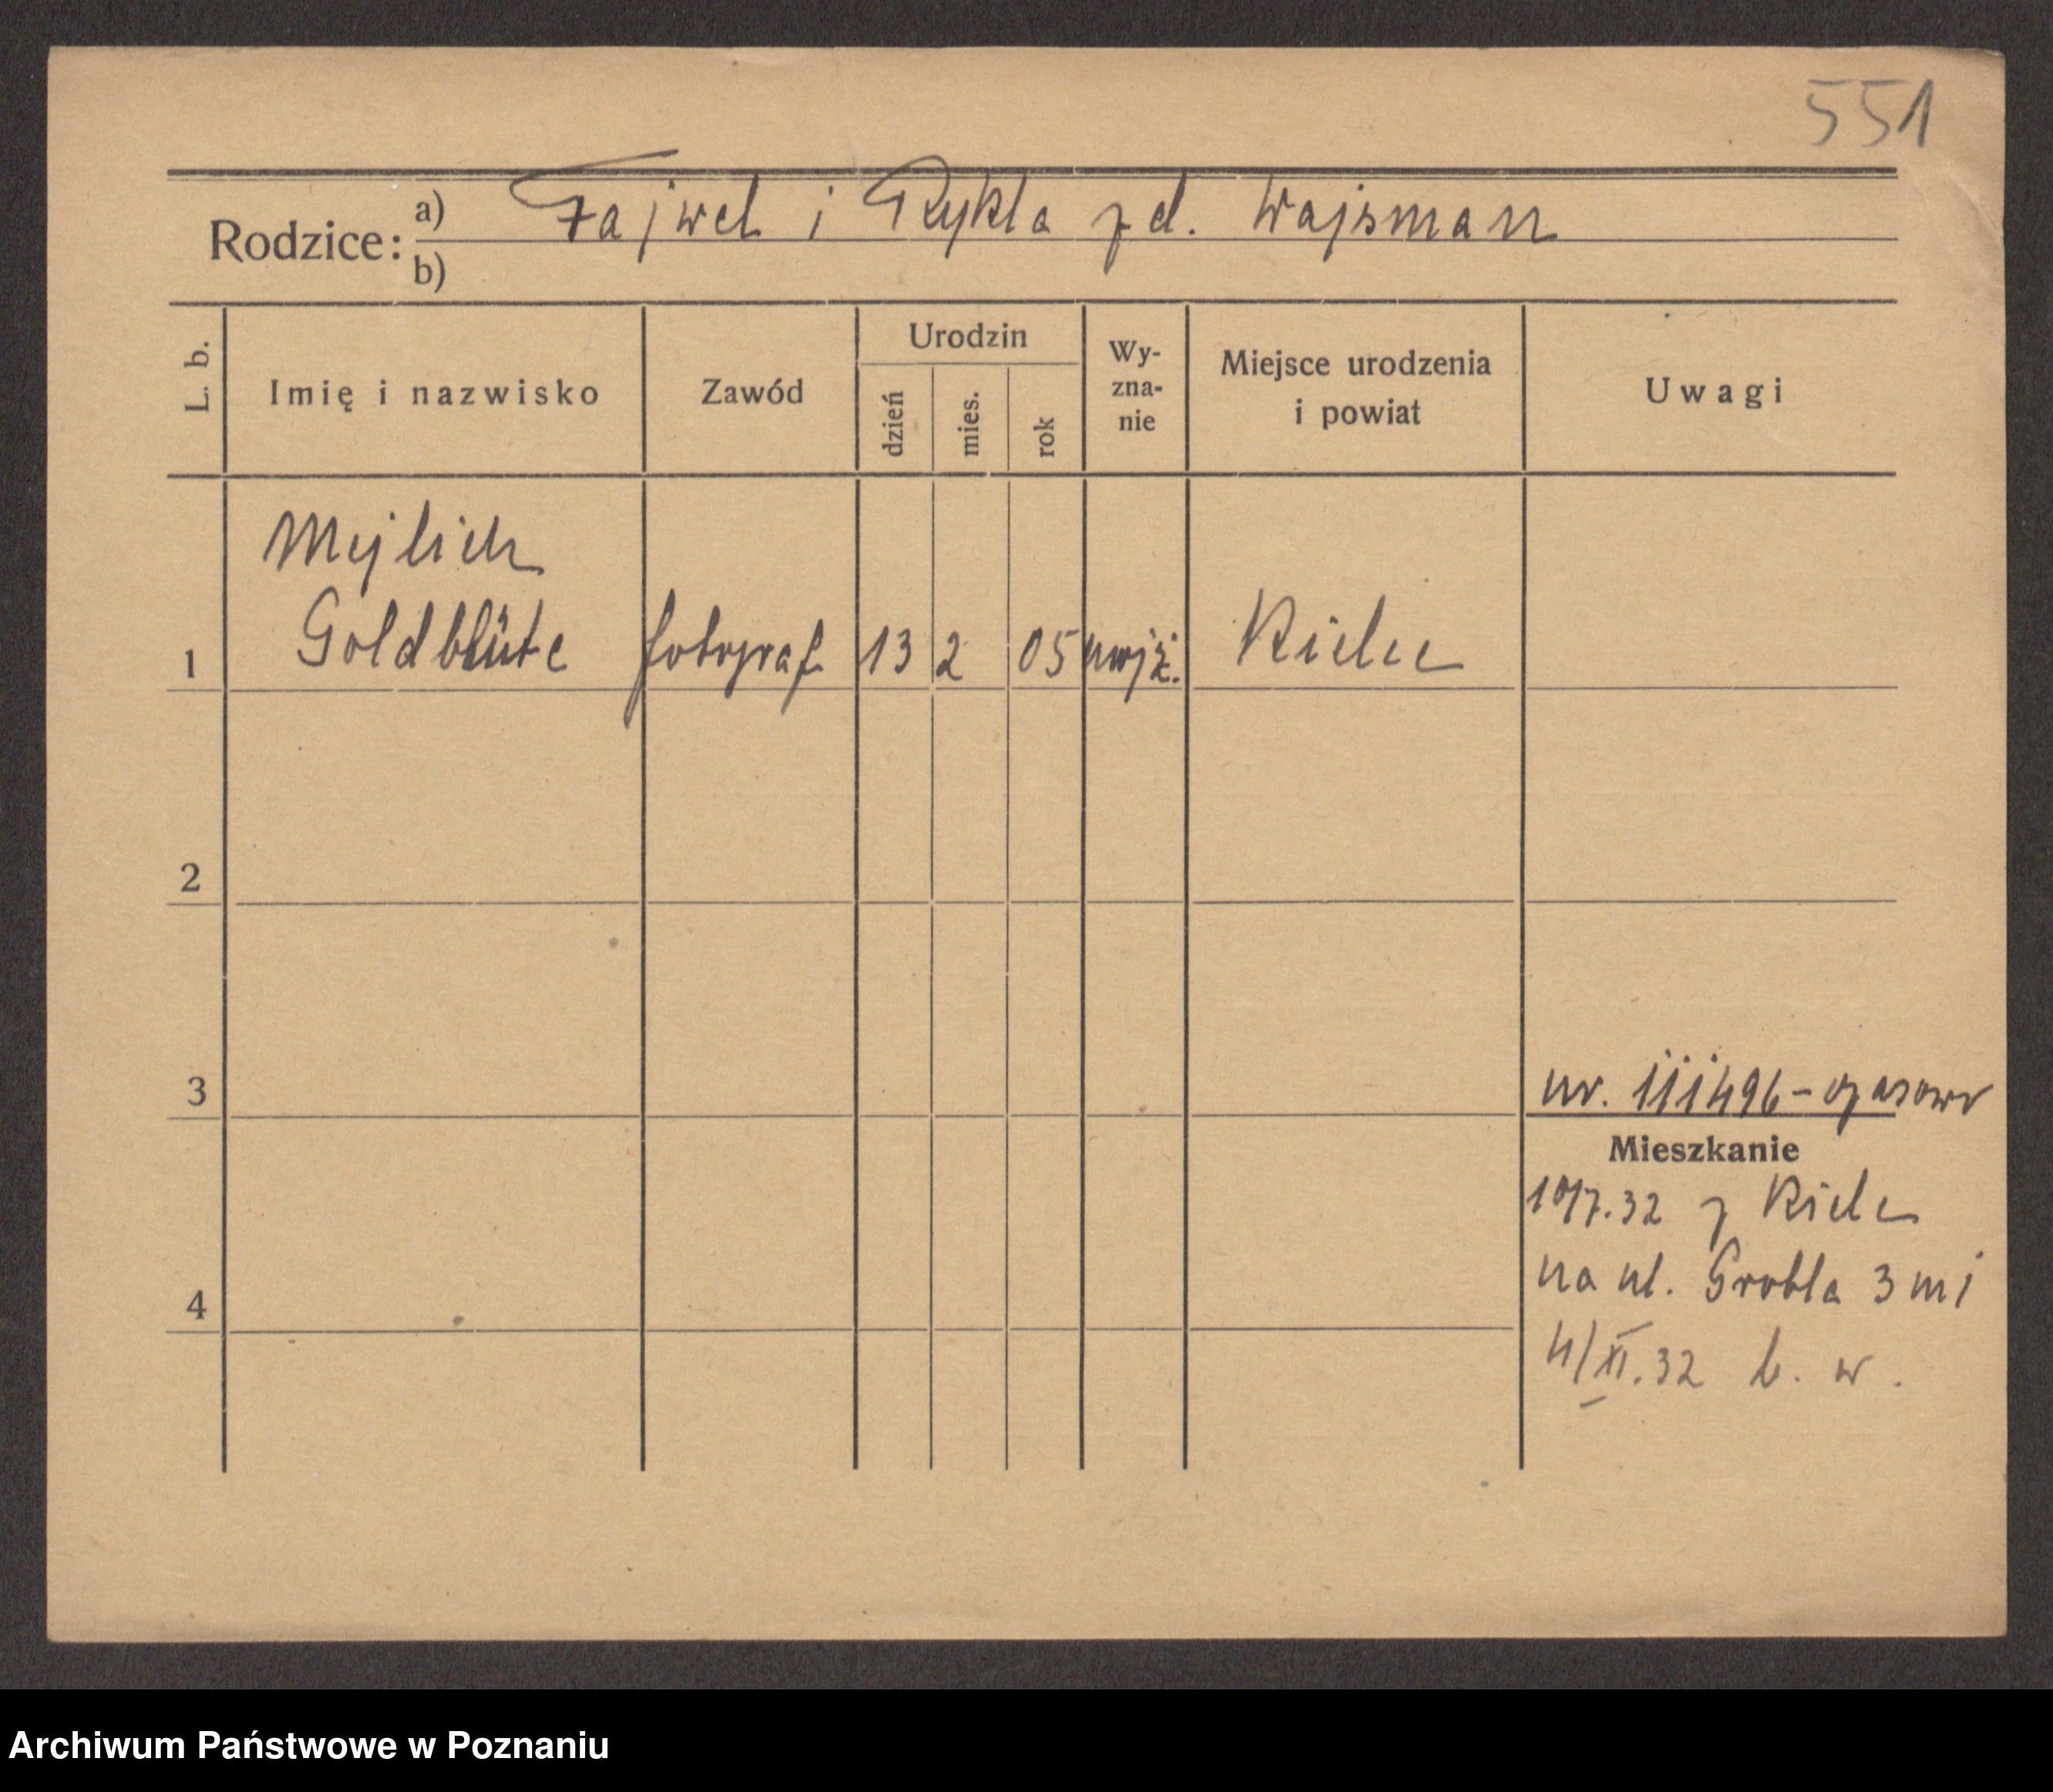 551
Rodzice: a) Fajwel i Rykla z d. Wajsman
b)
L. b.
Imię i nazwisko
Zawód
Urodzin
dzień
mies.
rok
Wy-
zna-
nie
Miejsce urodzenia
i powiat
Uwagi
Mejlich
1 Goldblüte fotograf 13 2 05 Kielce
2
3
nr. 111496 - czasowo
Mieszkanie
10/7.32 z Kielc
na ul. Grobla 3 m 1
4
4/XI.32 b. w.
Archiwum Państwowe w Poznaniu